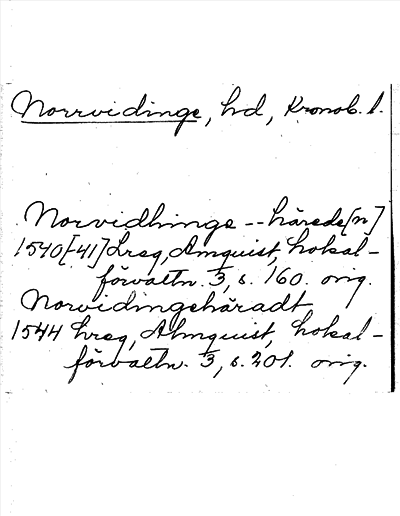 Norrvidinge, hd, Kronob. l.
Norvidhinge -- härede[n]
1540[-41] Lreg, Almquist, Lokal-
förvaltn. 3, s. 160. orig.
Norvidingehäradt
1544 Lreg, Almquist, Lokal-
förvaltn. 3, s. 201. orig.